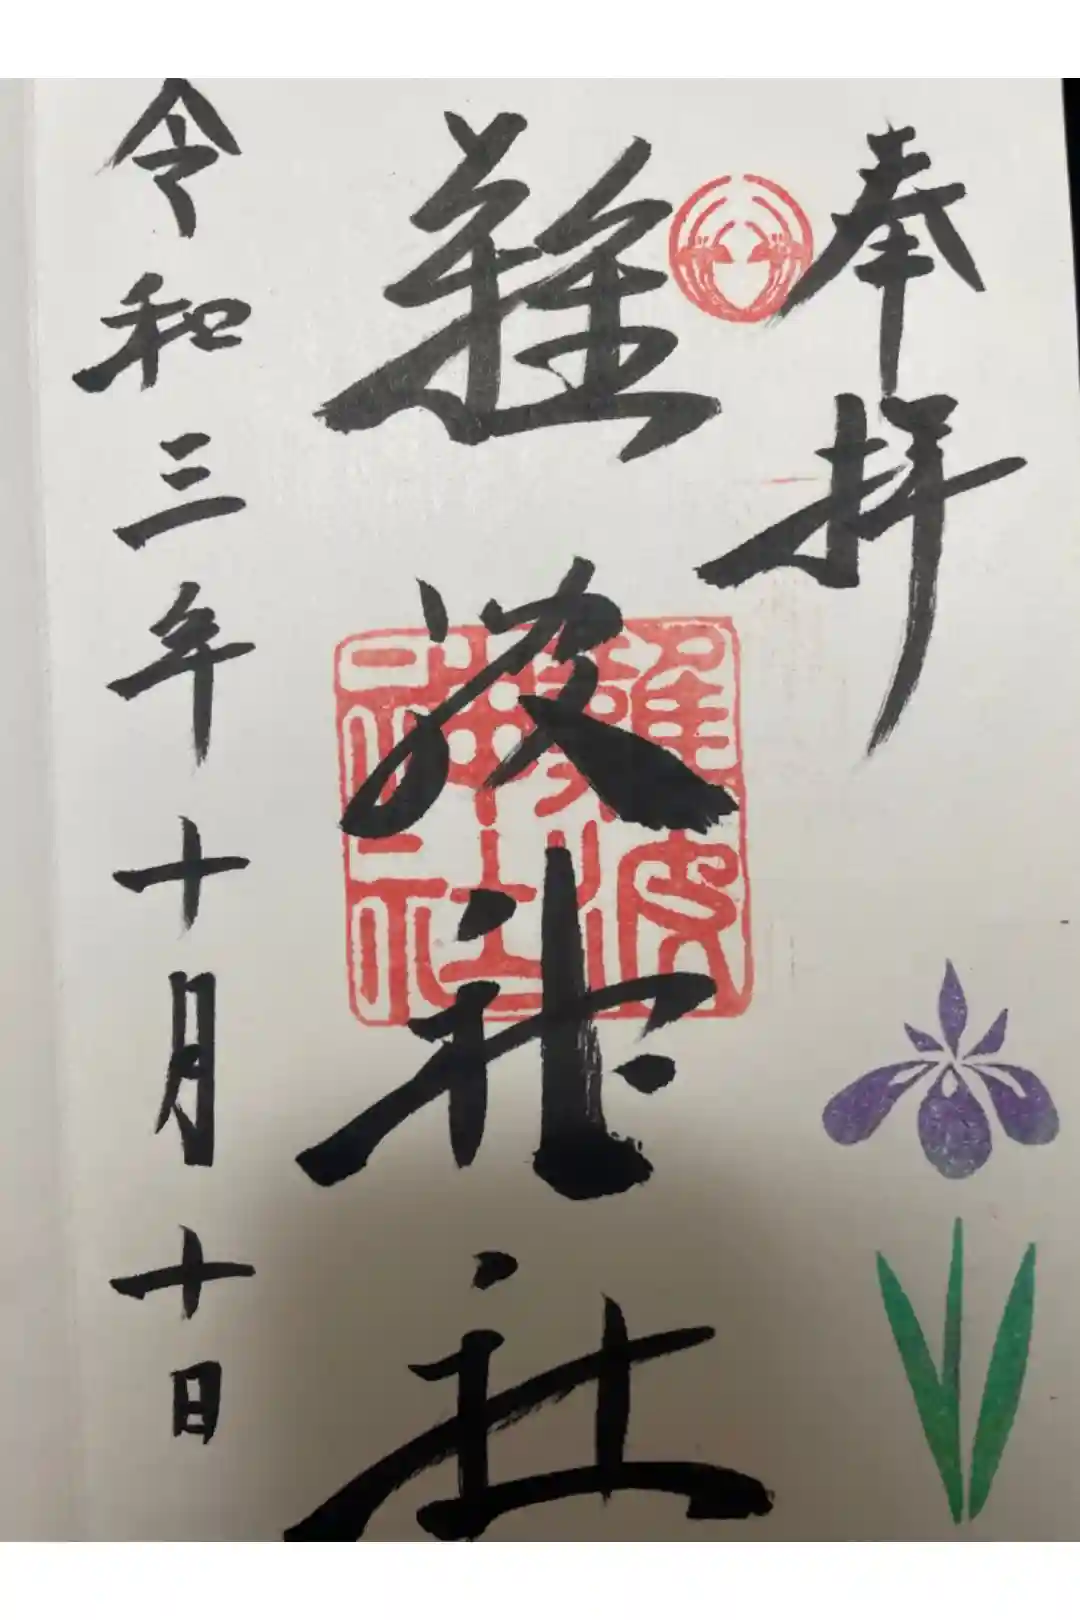 奉拝
難波神社
難波神社
令和三年十月十日